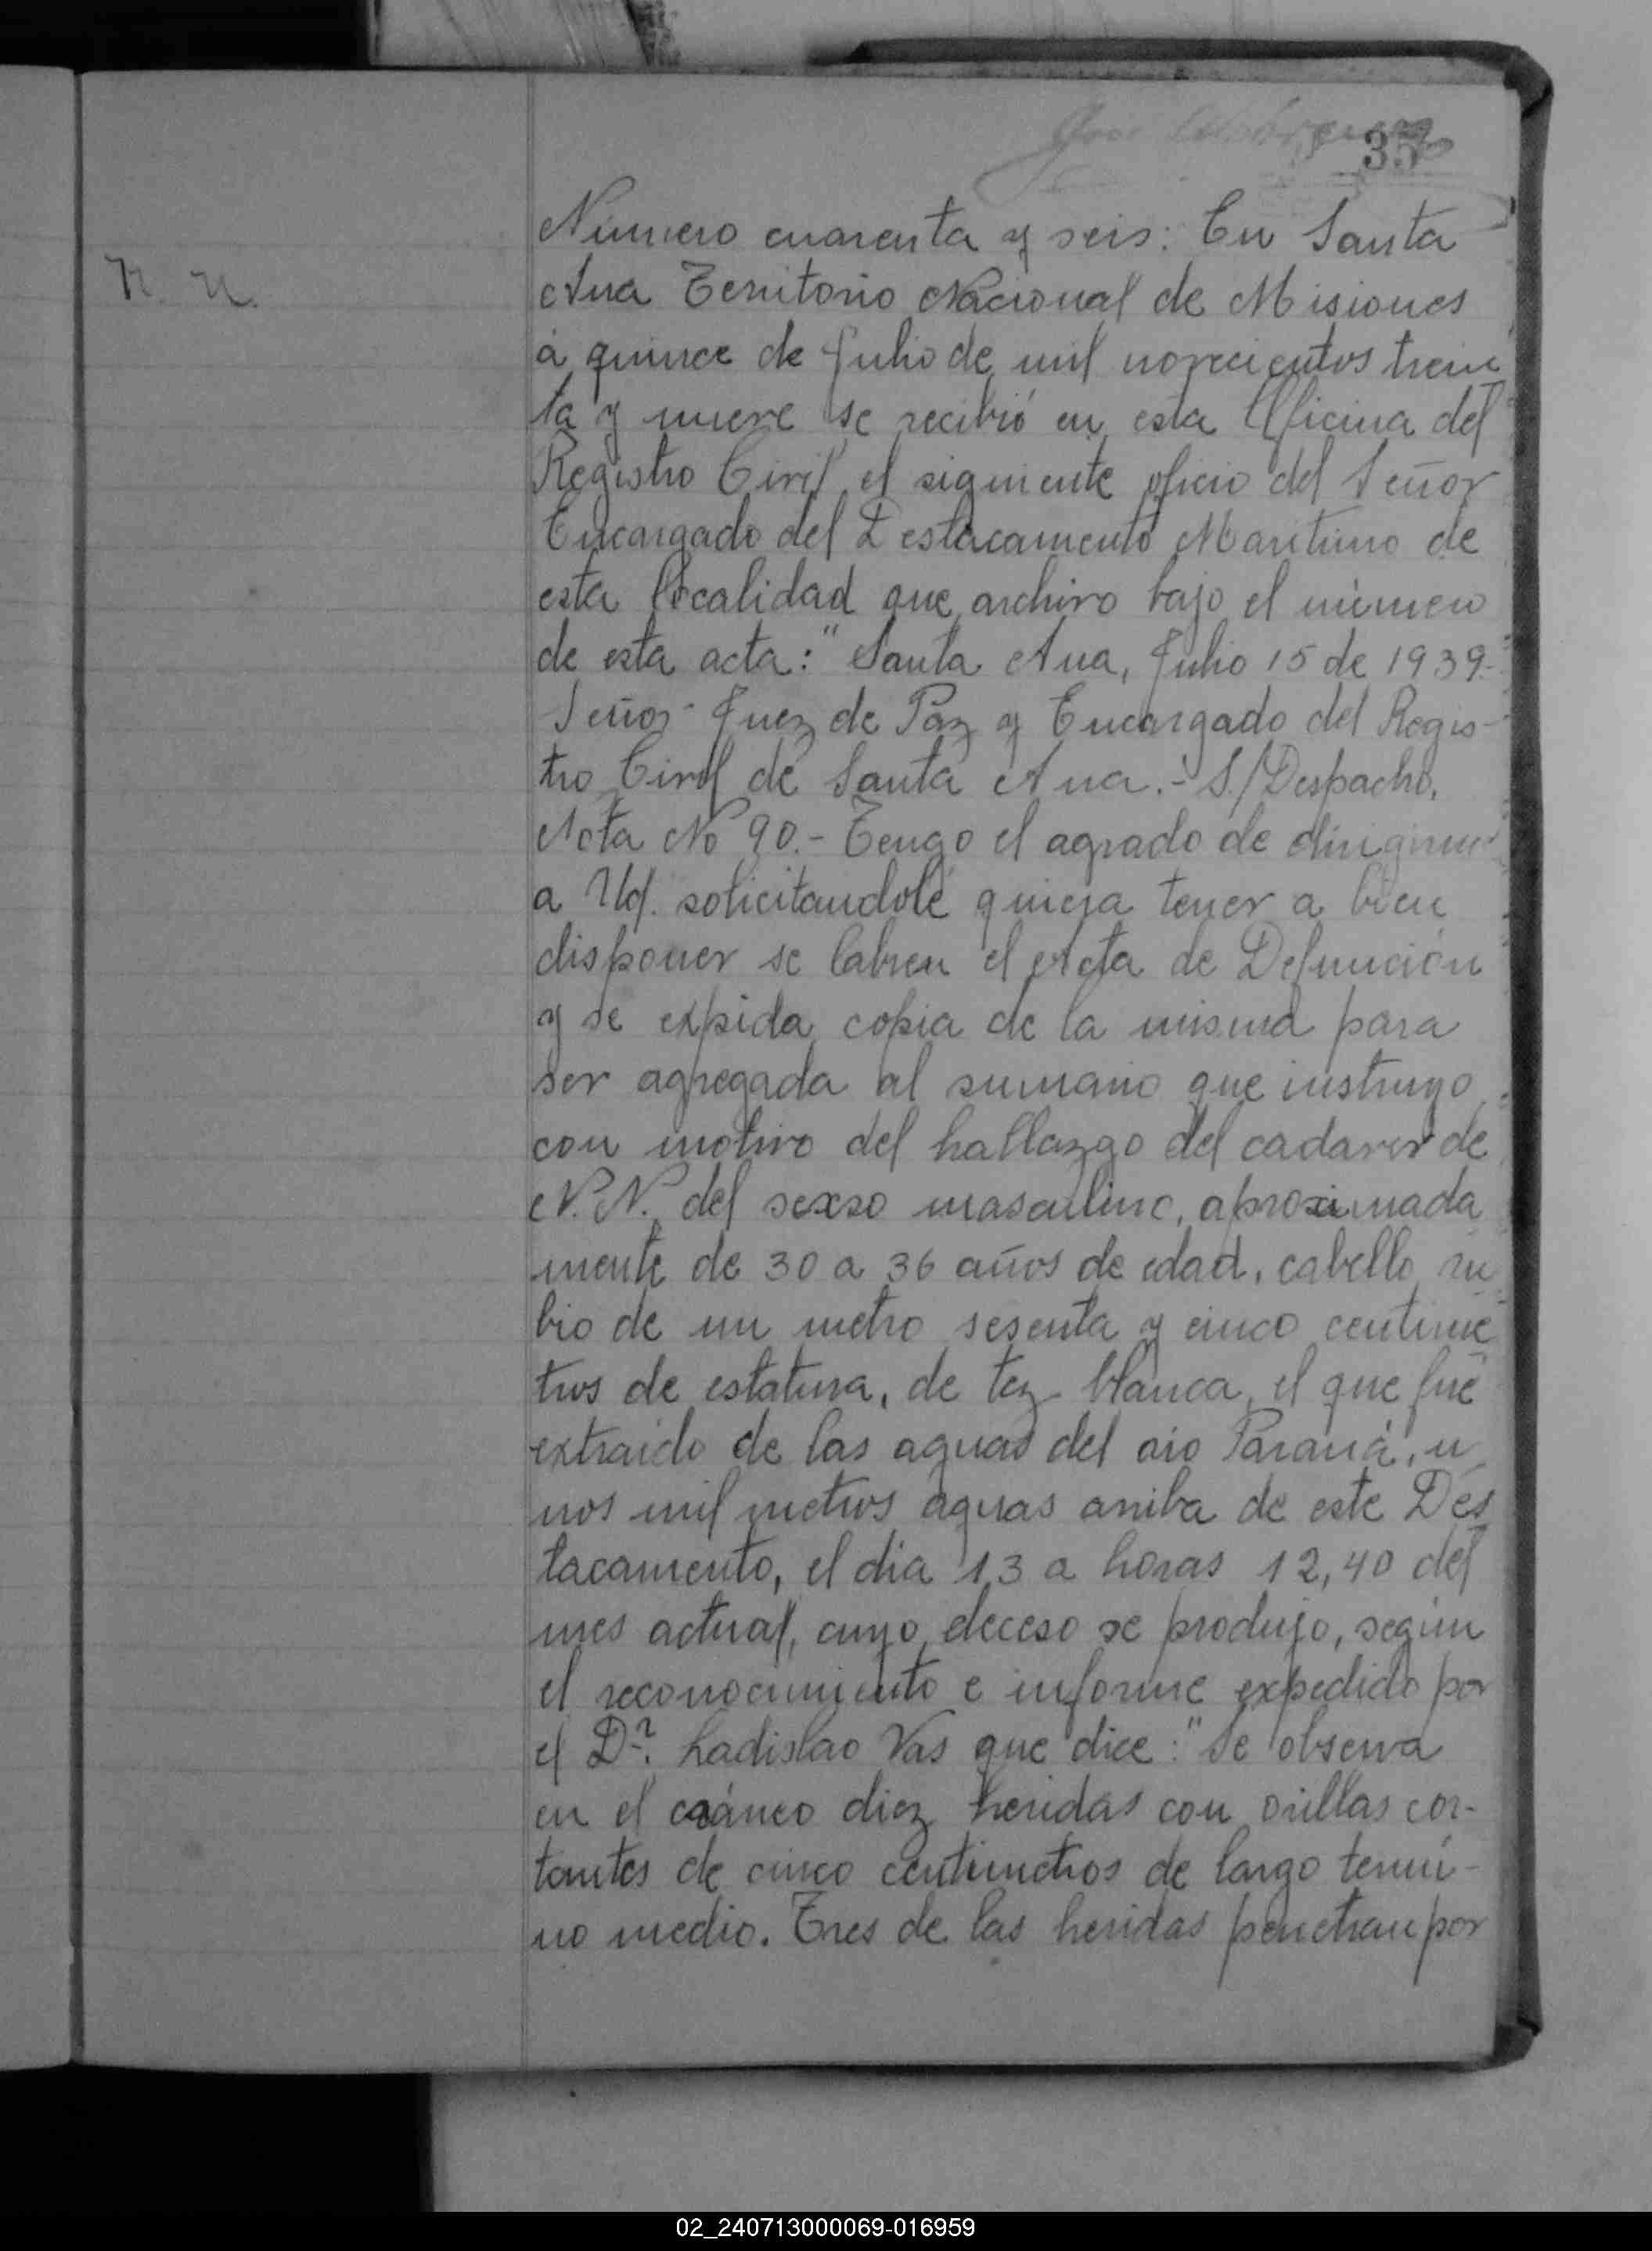 35
Número cuarenta y seis: En Santa
N. N.
Ana Territorio Nacional de Misiones
á quince de Julio de mil novecientos trein
ta y nueve se recibió en esta Oficina del
Registro Civil el siguiente oficio del Señor
Encargado del Destacamento Maritimo de
esta localidad que archivo bajo el número
de esta acta: "Santa Ana, Julio 15 de 1939.-
Señor Juez de Paz y Encargado del Regis-
tro Civil de Santa Ana.- S./Despacho.
Acta No 90.- Tengo el agrado de dirigirme
a Ud. solicitandole quiera tener a bien
disponer se labren el Acta de Defunción
y se expida copia de la misma para
ser agregada al sumario que instruyo
con motivo del hallazgo del cadaver de
N. N. del sexso masculino, aproximada
mente de 30 a 36 años de edad, cabello ru
bio de un metro sesenta y cinco centime
tros de estatura, de tez blanca, el que fué
extraido de las aguas del rio Paraná, u
nos mil metros aguas arriba de este Des
tacamento, el dia 13 a horas 12,40 del
mes actual, cuyo deceso se produjo, según
el reconocimiento e informe expedido por
el Dr. Ladislao Vas que dice: "Se observa
en el cráneo diez heridas con orillas cor-
tantes de cinco centimetros de largo térmi-
no medio. Tres de las heridas penetran por
02_240713000069-016959